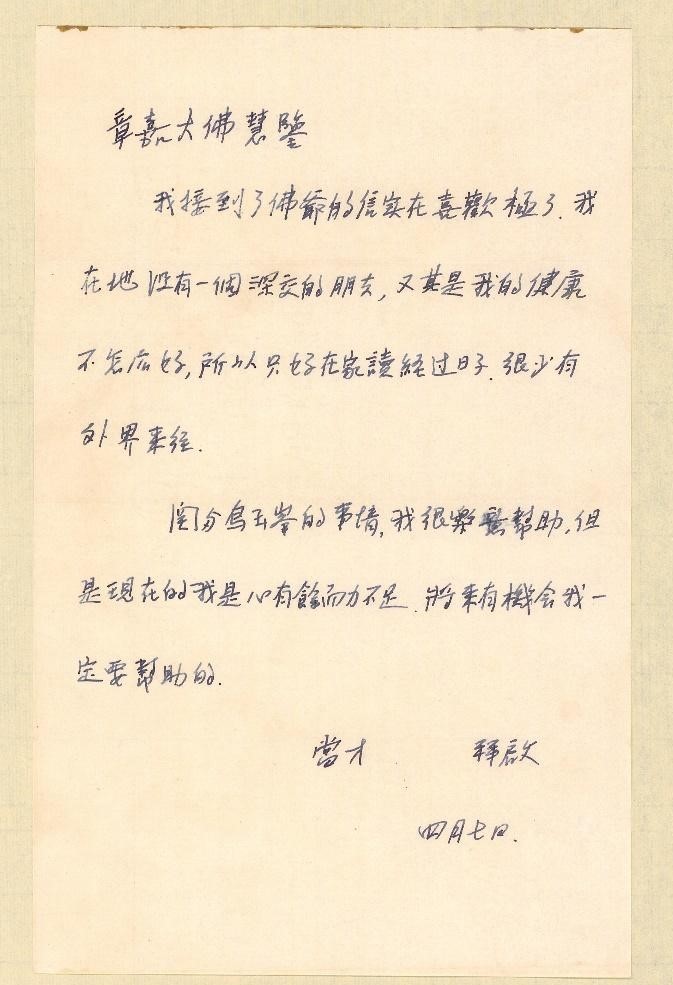 章嘉大佛慧鑒
我接到了佛爺的信实在喜歡極了.我
在地没有一個深交的朋友,又其是我的健康
不怎么好,所以只好在家讀経过日子.很少有
外界来往.
関於烏玉峯的事情,我很想帮助,但
是現在的我是心有餘而力不足.將来有機会我一
定要幫助的.
當才 拜啟
四月七日.